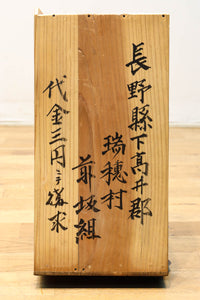 長野縣下高井郡
瑞穂村
前坂組
代金三円二テ購求